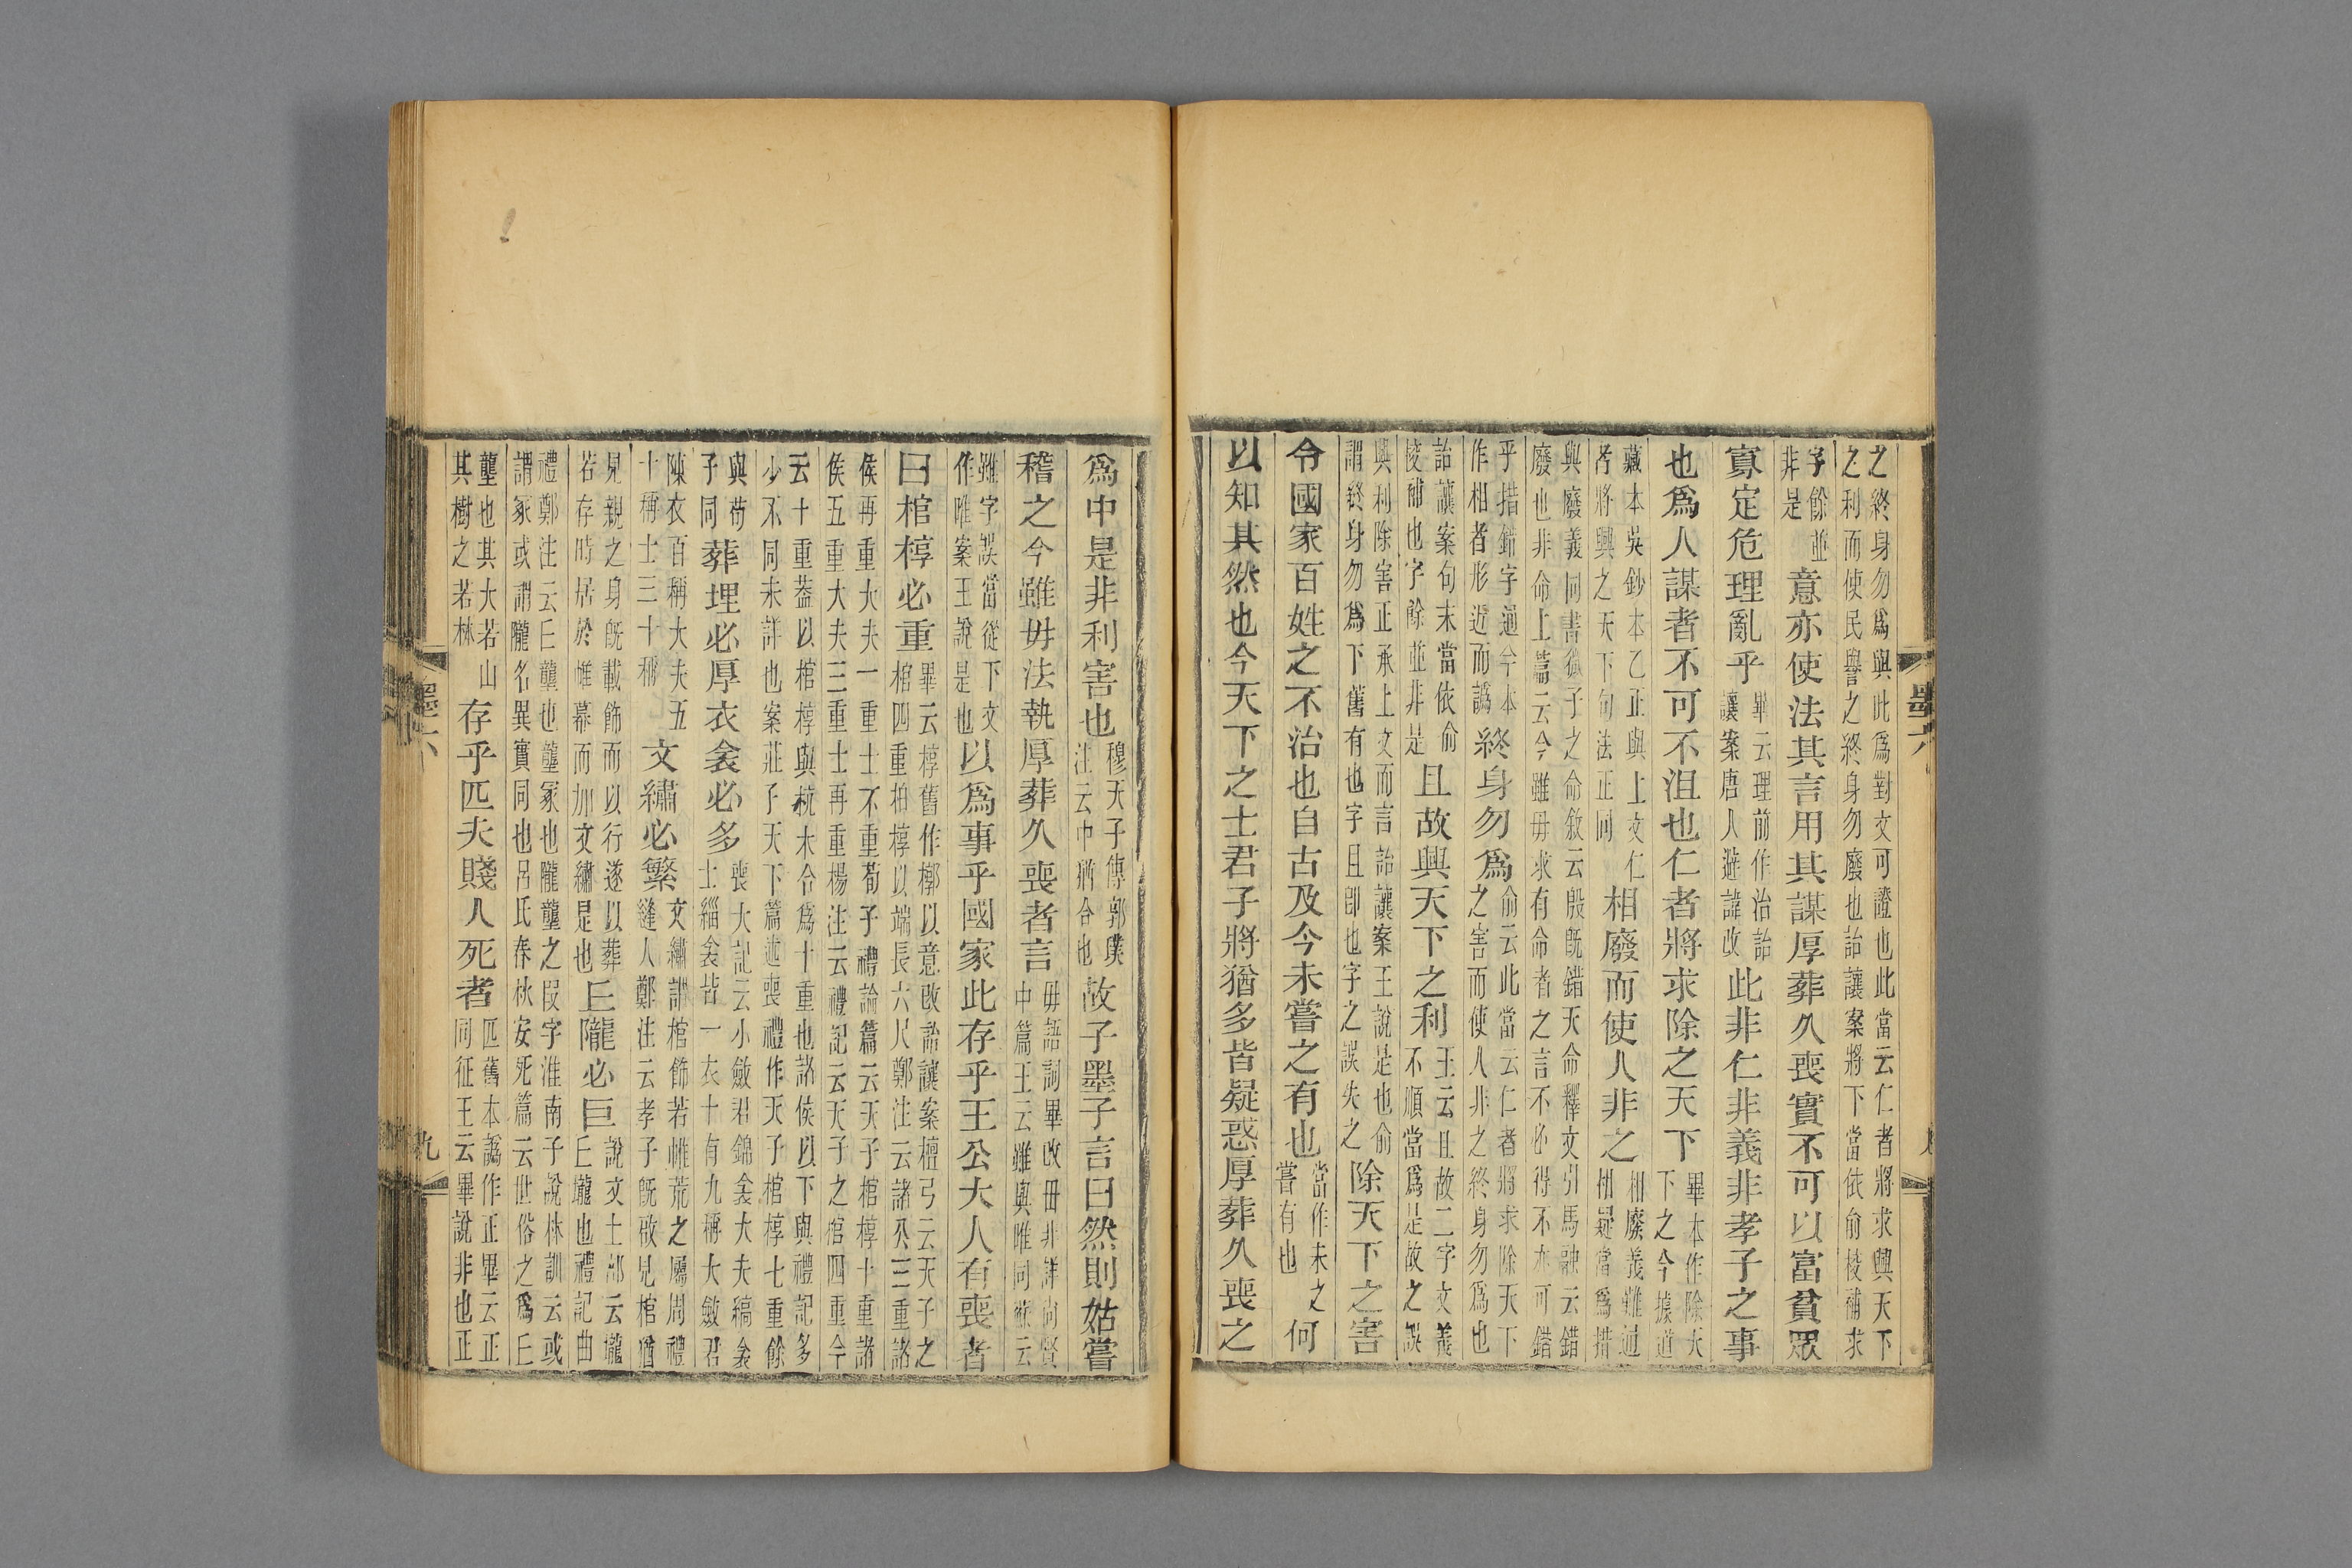 之終身勿爲與此爲對文可證也此當云仁者將求興天下
之利而使民譽之終身勿廢也詒讓案將下當依俞校補求
字餘並
非是
意亦使法其言用其謀厚葬久喪實不可以富貧眾
寡定危理亂乎
畢云理前作治詒
讓案唐人避諱改
此非仁非義非孝子之事
也爲人謀者不可不沮也仁者將求除之天下
畢本作除天
下之今據道
藏本吳鈔本乙正與上文仁
者將興之天下句法正同
相廢而使人非之
相廢義難通
相疑當爲措
與廢義同書微子之命敘云殷旣錯天命釋文引馬融云錯
廢也非命上篇云今雖毋求有命者之言不必得不亦可錯
乎措錯字通今本
作相者形近而譌
終身勿爲
俞云此當云仁者將求除天下
之害而使人非之終身勿爲也
詒讓案句末當依俞
校補也字餘並非是
且故興天下之利
王云且故二字文義
不順當爲是故之誤
興利除害正承上文而言詒讓案王說是也俞
謂終身勿爲下舊有也字且卽也字之誤失之
除天下之害
令國家百姓之不治也自古及今未嘗之有也
當作未之
嘗有也
何
以知其然也今天下之士君子將猶多皆疑惑厚葬久喪之
墨六
爲中是非利害也
穆天子傳郭璞
注云中猶合也
故子墨子言曰然則姑嘗
稽之今雖毋法執厚葬久喪者言
毋語詞畢改毌非詳尚賢
中篇王云雖與唯同蘇云
雖字誤當從下文
作唯案王說是也
以爲事乎國家此存乎王公大人有喪者
曰棺椁必重
畢云椁舊作槨以意改詒讓案檀弓云天子之
棺四重柏椁以端長六尺鄭注云諸公三重諸
侯再重大夫一重士不重荀子禮論篇云天子棺椁十重諸
侯五重大夫三重士再重楊注云禮記云天子之棺四重今
云十重葢以棺椁與杭木合爲十重也諸侯以下與禮記多
少不同未詳也案莊子天下篇述喪禮作天子棺椁七重餘
與荀
子同
葬埋必厚衣衾必多
喪大記云小斂君錦衾大夫縞衾
士緇衾皆一衣十有九稱大斂君
陳衣百稱大夫五
十稱士三十稱
文繡必繁
文繡謂棺飾若帷荒之屬周禮
縫人鄭注云孝子旣啟見棺猶
見親之身旣載飾而以行遂以葬
若存時居於帷幕而加文繡是也
丘隴必巨
說文土部云壠
丘壠也禮記曲
禮鄭注云丘壟也壟冢也隴壟之叚字淮南子說林訓云或
謂冢或謂隴名異實同也呂氏春秋安死篇云世俗之爲丘
壟也其大若山
其樹之若林
存乎匹夫賤人死者
匹舊本譌作正畢云正
同征王云畢說非也正
墨六
九